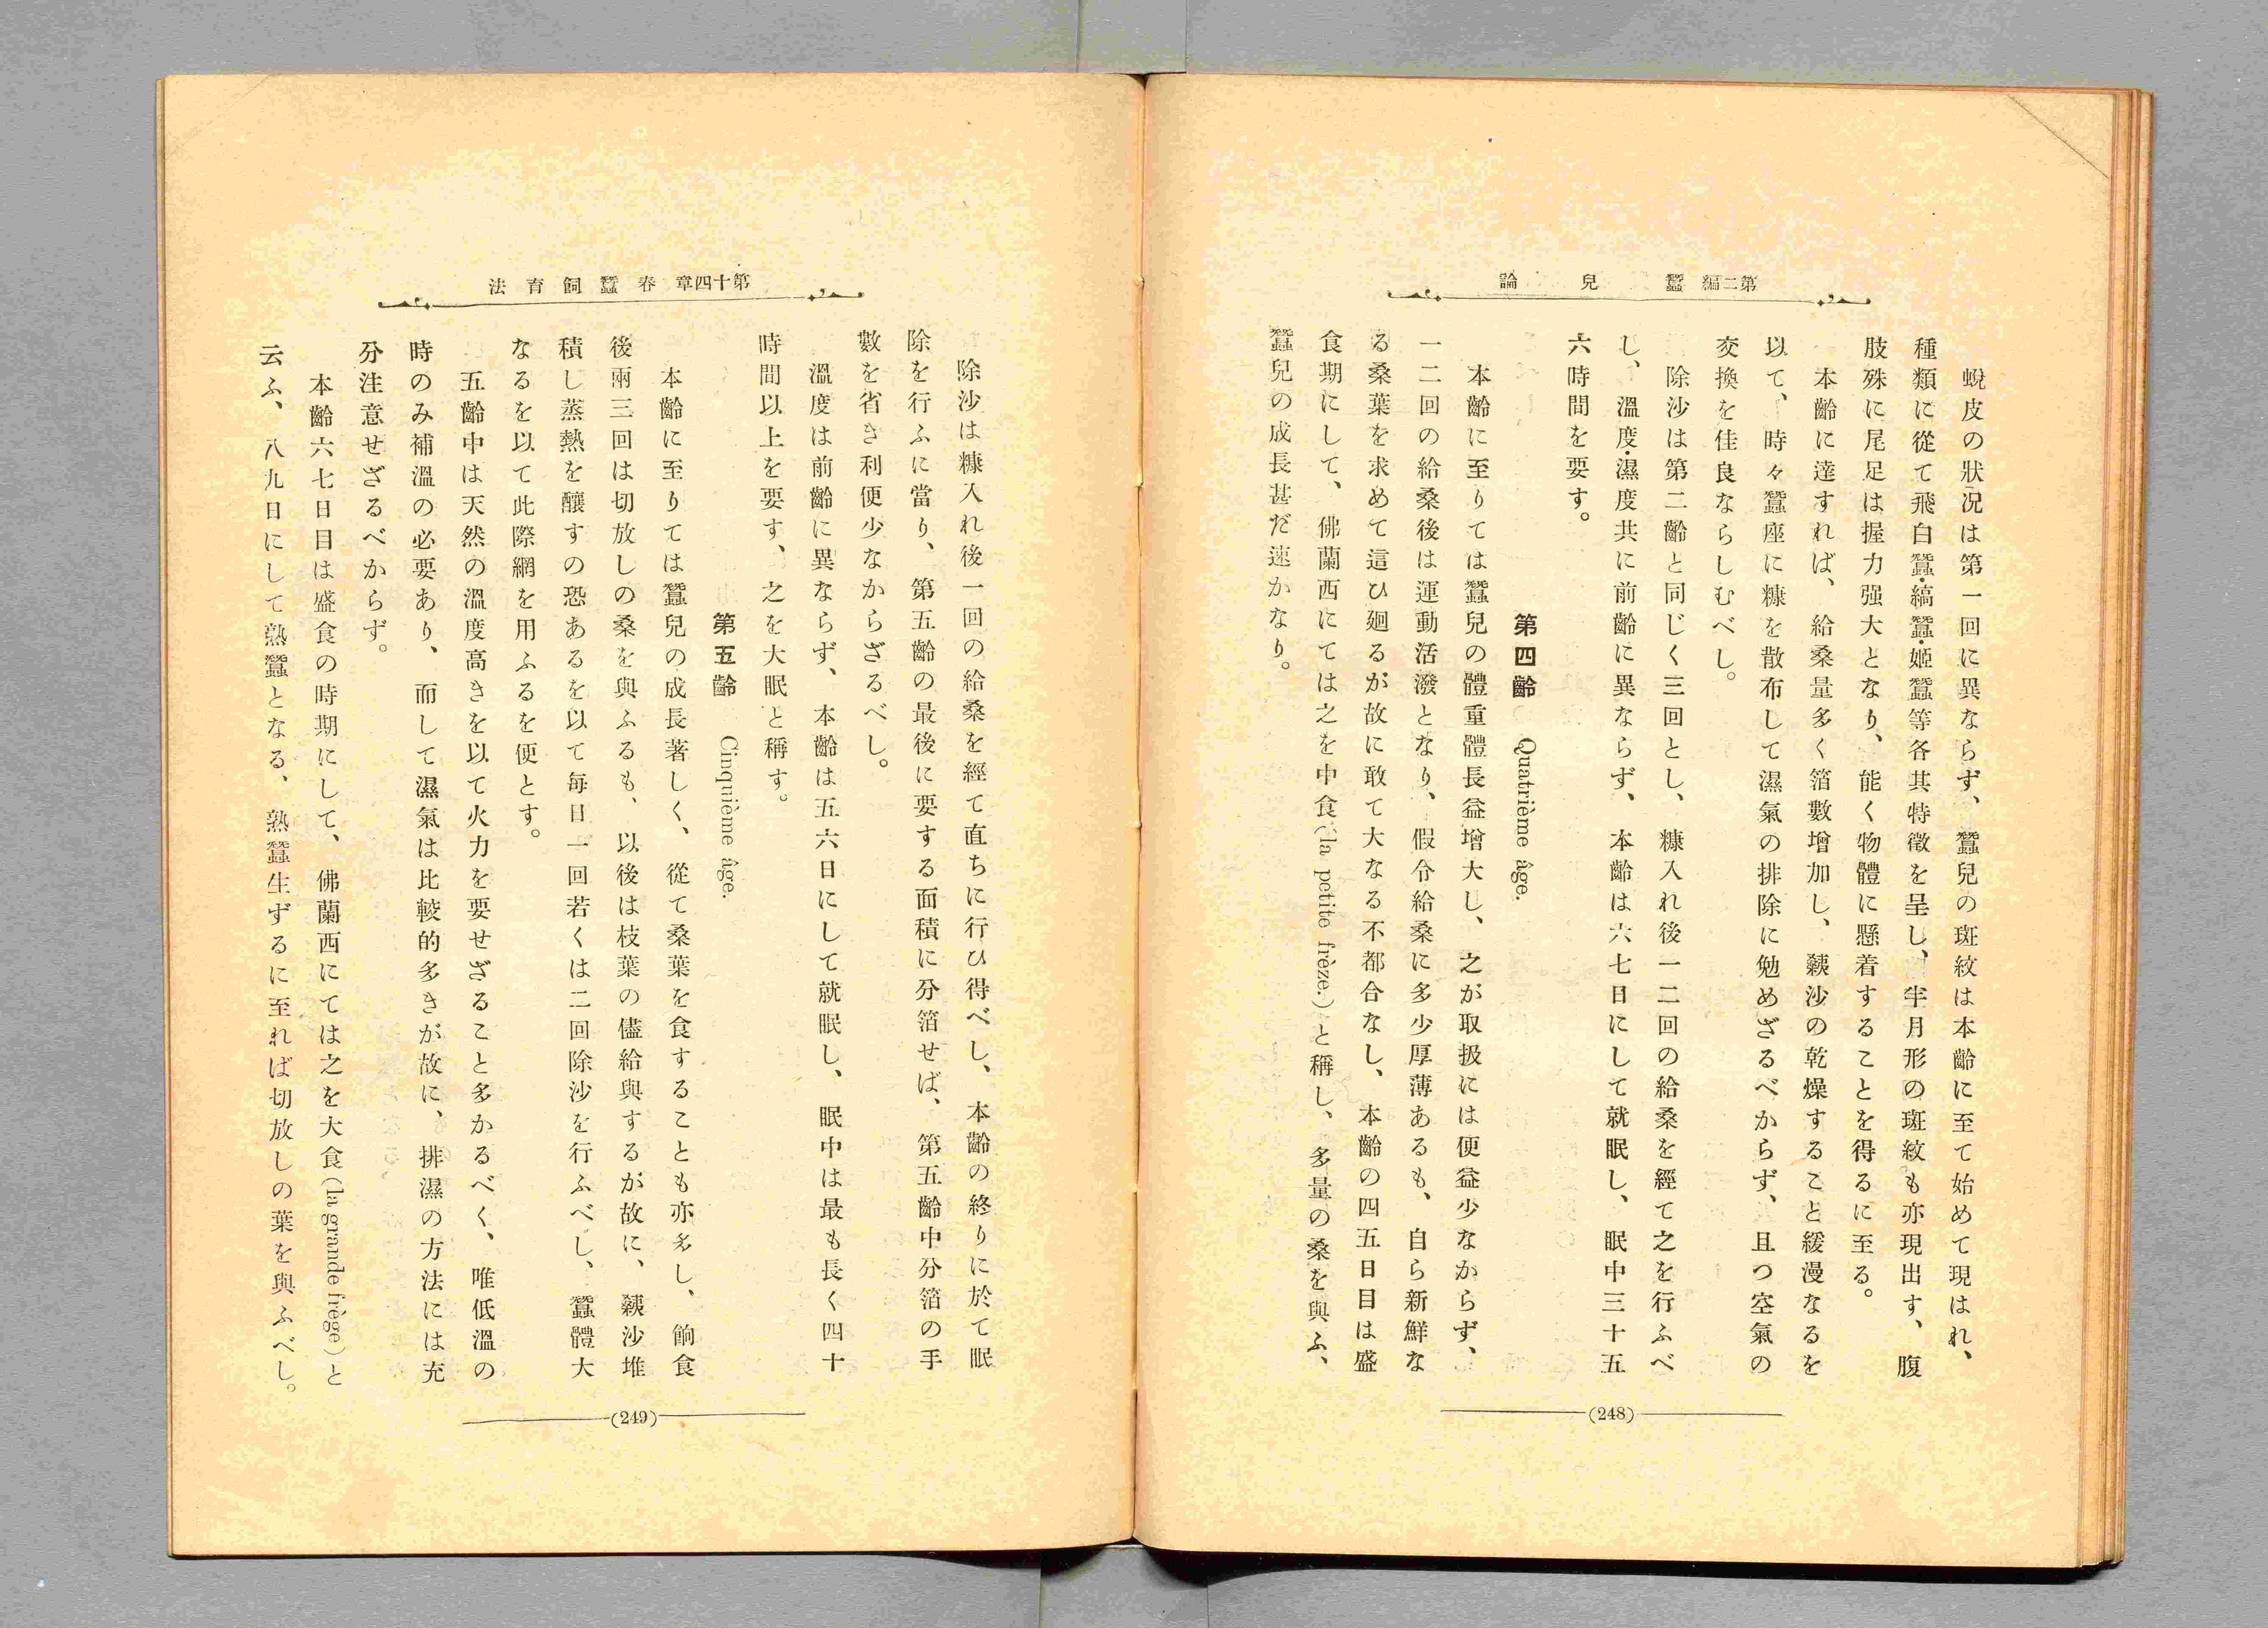 第二編 蠶兒論
蛻皮の狀况は第一回に異ならず、蠶兒の斑紋は本齡に至て始めて現はれ、
種類に從て飛白蠶・縞蠶・姬蠶等各其特徵を呈し、半月形の斑紋も亦現出す、腹
肢殊に尾足は握力强大となり、能く物體に懸着することを得るに至る。
本齡に達すれば、給桑量多く箔數增加し、蘱沙の乾燥すること緩漫なるを
以て、時々蠶座に糠を散布して濕氣の排除に勉めざるべからず、且つ空氣の
変換を佳良ならしむべし。
除沙は第二齡と同じく三回とし、糠入れ後一二回の給桑を經て之を行ふべ
し、溫度・濕度共に前齡に異ならず、本齡は六七日にして就眠し、眠中三十五
六時間を要す。
第四齡 Quatrième âge.
本齡に至りては蠶兒の體重體長益增大し、之が取扱には便益少なからず、
一二回の給桑後は運動活潑となり、假令給桑に多少厚薄あるも、自ら新鮮な
る桑葉を求めて這ひ廻るが故に敢て大なる不都合なし、本齡の四五日目は盛
食期にして、佛蘭西にては之を中食(la petite frèze.)と稱し、多量の桑を與ふ、
蠶兒の成長甚だ速かなり。
(248)
第十四章 春蠶飼育法
除沙は糠入れ後一回の給桑を經て直ちに行ひ得べし、本齡の終りに於て眠
除を行ふに當り、第五齡の最後に要する面積に分箔せば、第五齡中分箔の手
數を省き利便少なからざるべし。
溫度は前齡に異ならず、本齡は五六日にして就眠し、眠中は最も長く四十
時間以上を要す、之を大眠と稱す。
第五齡 Cinquième âge.
本齡に至りては蠶兒の成長著しく、從て桑葉を食することも亦多し、餉食
後兩三回は切放しの桑を與ふるも、以後は枝葉の儘給與するが故に、蘱沙堆
積し蒸熱を釀すの恐あるを以て每日一回若くは二回除沙を行ふべし、蠶體大
なるを以て此際網を用ふるを便とす。
五齡中は天然の溫度高きを以て火力を要せざること多かるべく、唯低溫の
時のみ補溫の必要あり、而して濕氣は比較的多きが故に、排濕の方法には充
分注意せざるべからず。
本齡六七日目は盛食の時期にして、佛蘭西にては之を大食(la grande frège)と
云ふ、八九日にして熟蠶となる、熟蠶生ずるに至れば切放しの葉を與ふべし。
(249)